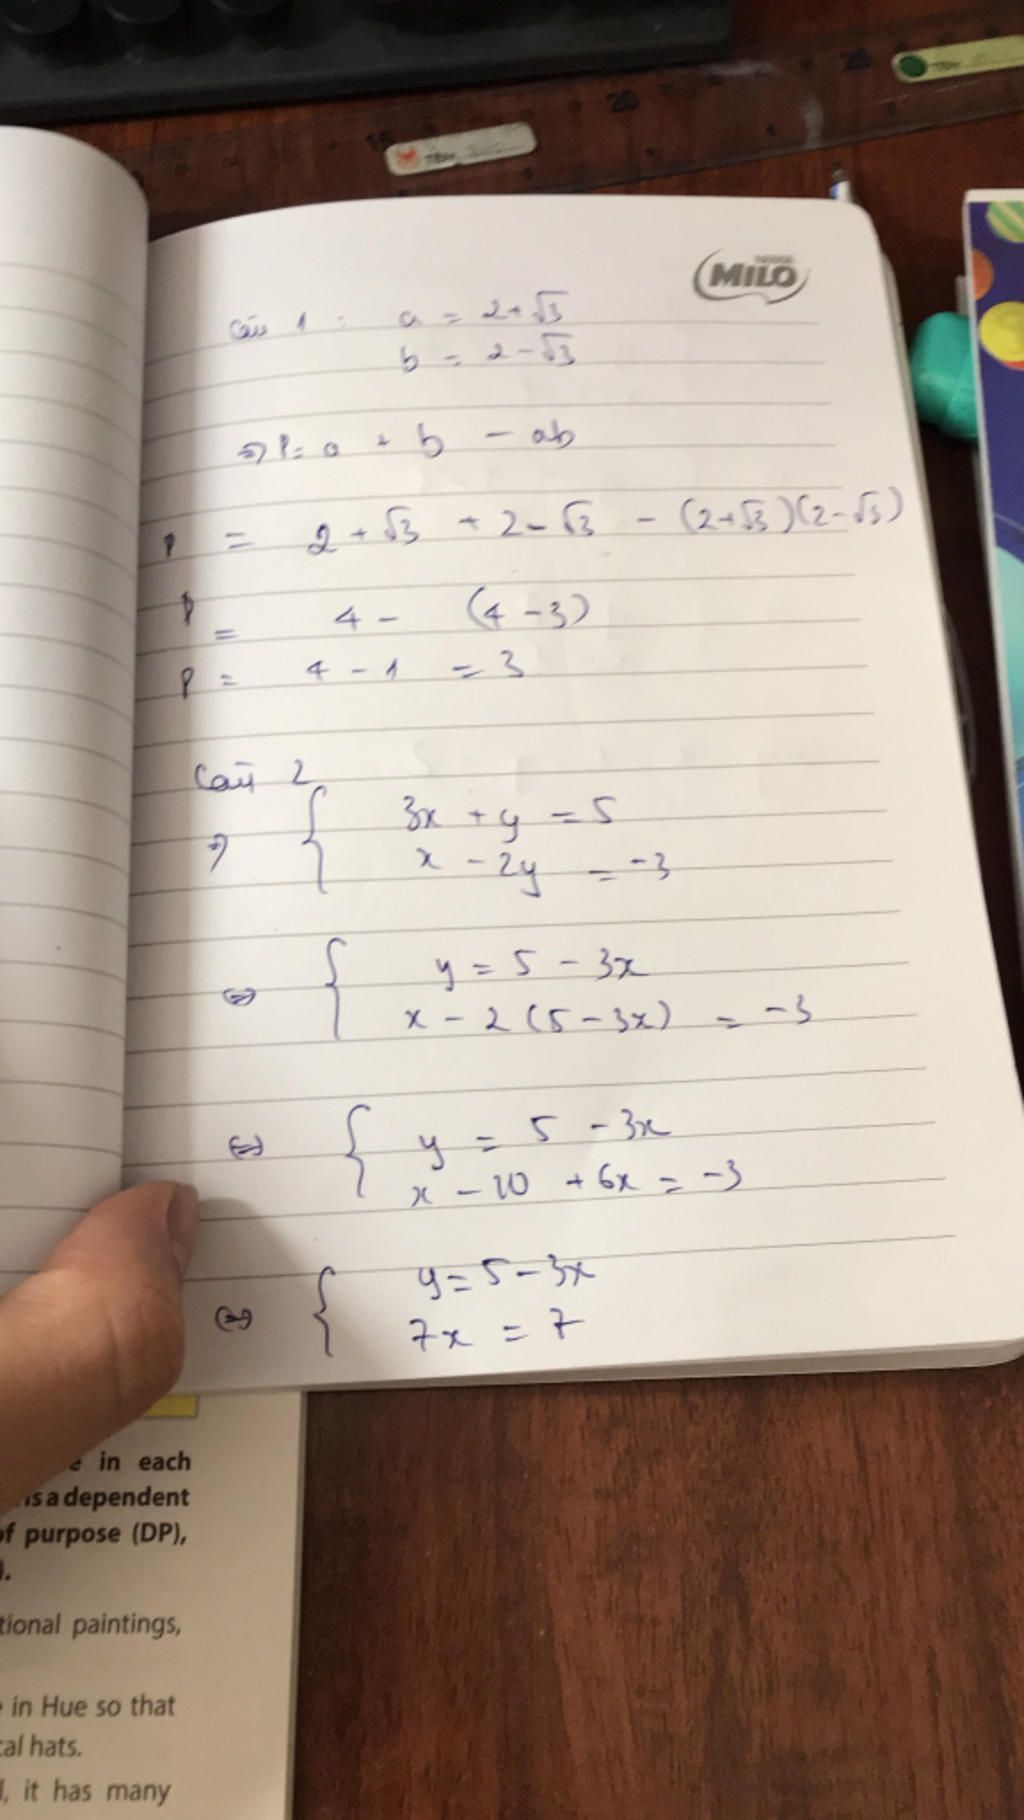 MILO
Câu 1 : a = 2+√3
b = 2-√3
=> P= a + b - ab
P = 2 + √3 + 2 - √3 - (2+√3)(2-√3)
P = 4 - (4 - 3)
P = 4 - 1 = 3
Câu 2
=> { 3x + y = 5
x - 2y = -3
<=> { y = 5 - 3x
x - 2 (5 - 3x) = -3
<=> { y = 5 - 3x
x - 10 + 6x = -3
<=> { y = 5 - 3x
7x = 7
in each
is a dependent
of purpose (DP),
).
tional paintings,
in Hue so that
cal hats.
, it has many